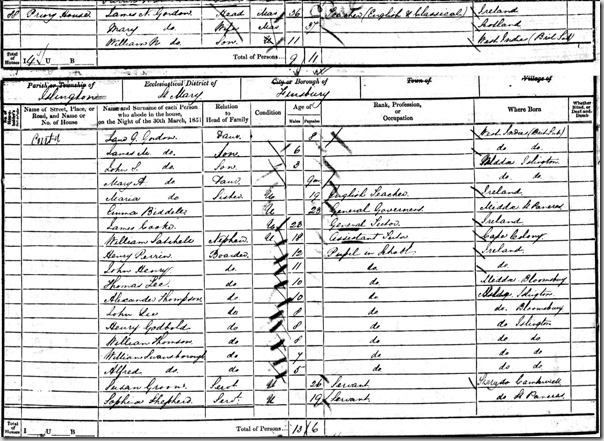 Priory House James N. Gordon Head Mar 36 Teacher (English & Classical) Ireland
Mary do Wife Mar 37 Scotland
William N. do. Son U 11 West Indies (Brit Sub)
Total of Houses I U B Total of Persons 9 11
Parish or Township of Ecclesiastical District of City or Borough of Town of Village of
Islington St Mary Finsbury
Name of Street, Place, or Road, and Name or No. of House Name and Surname of each Person who abode in the house, on the Night of the 30th March, 1851 Relation to Head of Family Condition Age of Males Females Rank, Profession, or Occupation Where Born Whether Blind, or Deaf-and-Dumb
Contd Gordon Daur 8 West Indies (Brit Sub)
James M do. Son 6 do do
John S. do. Son 3 Middx Islington
Mary A. do. Daur do. do.
Maria do Sister U 19 English Teacher Ireland
Emma Biddell U 23 General Governess Middx St Pancras
James Cooke U 23 General Tutor Ireland
William Satchell Nephew U 18 Assistant Tutor Cape Colony
Henry Perrin Boarder 12 Pupil in Ireland
John Henry do. 11 do. do
Thomas Lee do. 10 do. Middx Bloomsbury
Alexander Thompson do 10 do. Islington
John Lee do 8 do. do. Bloomsbury
Henry Godbold do 8 do do Islington
William Thomson do 8 do. do do
William Swansborough do 7 do. do do
Alfred do. do 5 do do do
Susan Groom Servt U 26 Servant Camberwell
Sophia Shepherd Servt U 19 Servant do St Pancras
Total of Houses I U B Total of Persons 13 6